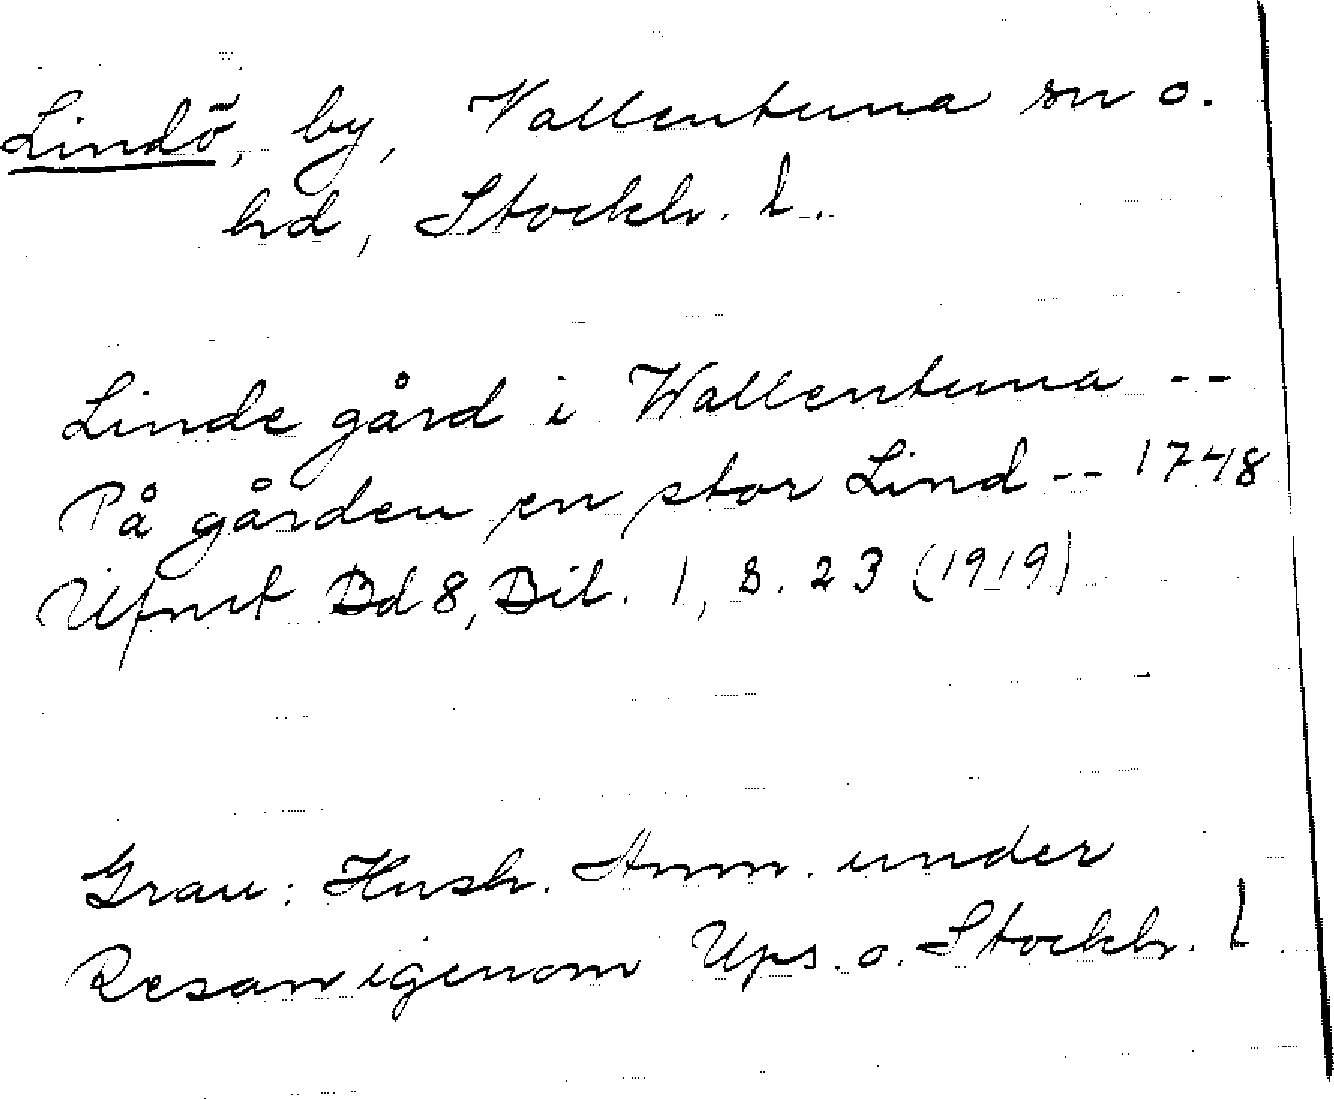 Lindö, by, Vallentuna sn o.
hd, Stockh. l.
Linde gård i Wallentuna --
På gården en stor Lind -- 1748
Ufmt Bd 8, Bil. 1, s. 23 (1919)
Grau: Hush. Anm. under
Resan igenom Ups. o. Stockh. l